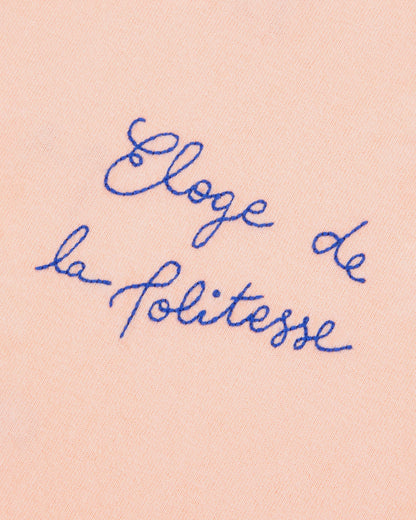 Eloge de
la Politesse